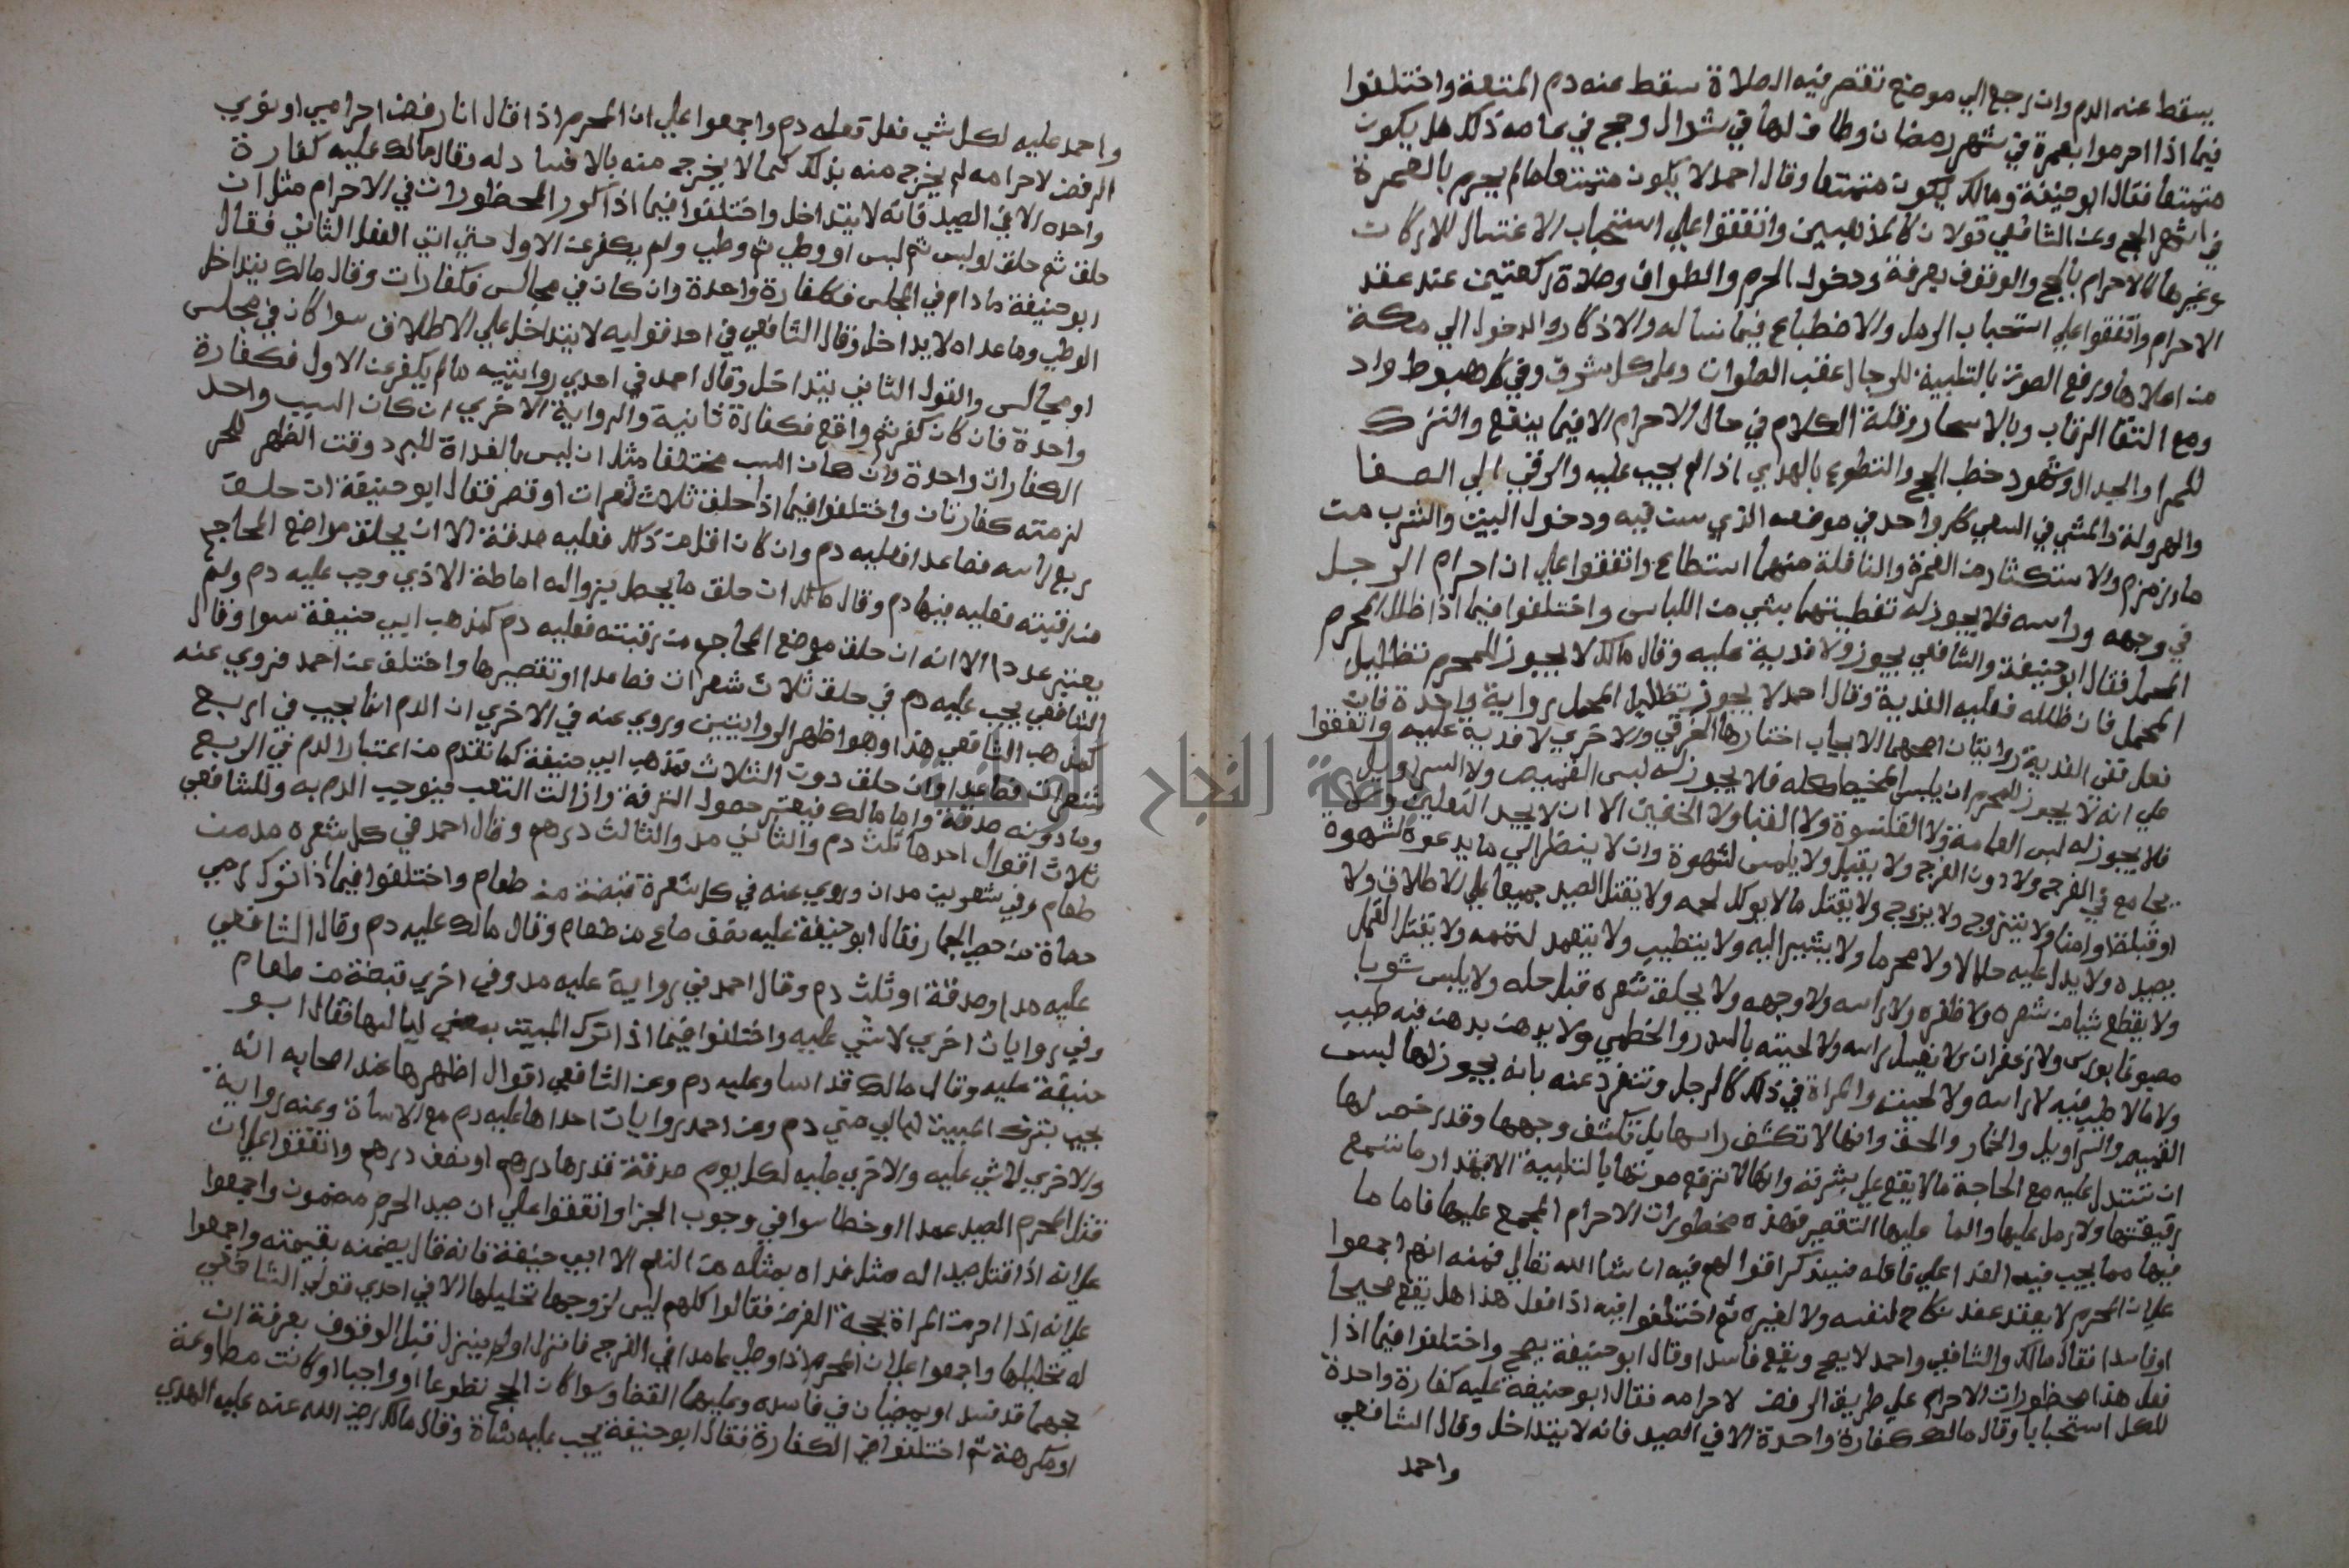 يسقط عنه الدم وان رجع الي موضع تقصر فيه الصلاة سقط عنه دم المتعة واختلفوا
فيما اذا احرموا بعمرة في شهر رمضان وطاف لها في شوال وحج في عامه ذلك هل يكون
متمتعا فقال ابو حنيفة ومالك يكون متمتعا وقال احمد لا يكون متمتعا ما لم يحرم بالعمرة
في اشهر الحج وعن الشافعي قولان كالمذهبين واتفقوا علي استحباب الاغتسال للاركان
وغيرها كالاحرام بالحج والوقوف بعرفة ودخول الحرم والطواف وصلاة ركعتين عند عقد
الاحرام واتفقوا علي استحباب الرمل والاضطباع فيما نساله والاذكار والدخول الي مكة
من اعلاها ورفع الصوت بالتلبية للرجال عقب الصلوات وعلي كل شرف وفي كل هبوط واد
ومع التقا الرقاب وبالاسحار وقلة الكلام في حال الاحرام الا فيما ينفع والترك
للمرا والجدال وشهود خطب الحج والتطوع بالهدي اذا لم يجب عليه والرقي الي الصفا
والهرولة والمشي في السعي كل واحد في موضعه الذي سن فيه ودخول البيت والشرب من
ماء زمزم والاستكثار من العمرة والنافلة منهما استطاع واتفقوا علي ان احرام الرجل
في وجهه وراسه فلا يجوز له تغطيتهما بشي من اللباس واختلفوا فيما اذا ظلل المحرم
المحمل فقال ابو حنيفة والشافعي يجوز ولا فدية عليه وقال مالك لا يجوز للمحرم تظليل
المحمل فان ظلله فعليه الفدية وقال احمد لا يجوز تظليل المحمل رواية واحدة فان
فعل ففي الفدية روايتان اصحهما الايجاب اختارها الخرقي والاخري لا فدية عليه واتفقوا
علي انه لا يجوز للمحرم ان يلبس المخيط كله فلا يجوز له لبس القميص ولا السراويل
فلا يجوز له لبس العمامة ولا القلنسوة ولا القبا ولا الخفين الا ان لا يجد النعلين ولا
يجامع في الفرج ولا دون الفرج ولا يقبل ولا يلمس لشهوة وان لا ينظر الي ما يدعوه لشهوة
او قبلة او امنا ولا يتزوج ولا يزوج ولا يقتل ما لا يوكل لحمه ولا يقتل الصيد جميعا علي الاطلاق ولا
يصيده ولا يدل عليه حلالا ولا محرما ولا يشير اليه ولا يتطيب ولا يتعمد لشمه ولا يقتل القمل
ولا يقطع شيا من شعره ولا ظفره ولا راسه ولا وجهه ولا يحلق شعره قبل حله ولا يلبس ثوبا
مصبوغا بورس ولا زعفران ولا يغسل راسه ولا لحيته بالسدر والخطمي ولا يدهن بدهن فيه طيب
ولا ما لا طيب فيه لا راسه ولا لحيته والمراة في ذلك كالرجل وتنفرد عنه بانه يجوز لها لبس
القميص والسراويل والخمار والخف وانها لا تكشف راسها بل تكشف وجهها وقد رخص لها
ان تستدل عليه مع الحاجة ما لا يقع علي بشرته وانها لا ترفع صوتها بالتلبية الا بمقدار ما تسمع
رفيقتها ولا رمل عليها وانما عليها التقصير فهذه محظورات الاحرام المجمع عليها فاما ما
فيها مما يجب فيه الفدا علي فاعله فيتذكر اقوالهم فيه ان شا الله تعالي فمنه انهم اجمعوا
علي ان المحرم لا يعقد عقد نكاح لنفسه ولا لغيره ثم اختلفوا فيه اذا فعل هذا هل يقع صحيحا
او فاسدا فقال مالك والشافعي واحمد لا يصح ويقع فاسدا وقال ابو حنيفة يصح واختلفوا فيما اذا
فعل هذا محظورات الاحرام علي طريق الرفض لاحرامه فقال ابو حنيفة عليه كفارة واحدة
للكل استحبابا وقال مالك كفارة واحدة الا في الصيد فانه لا يتداخل وقال الشافعي
واحمد
واحمد عليه لكل شي فعل فعله دم واجمعوا علي ان المحرم اذا قال انا رفضت احرامي او نوي
الرفض لاحرامه لم يخرج منه بذلك كما لا يخرج منه بالافساد له وقال مالك عليه كفارة
واحده الا في الصيد فانه لا يتداخل واختلفوا فيما اذا كرر المحظورات في الاحرام مثل ان
حلق ثم حلق او لبس ثم لبس او وطي ثم وطي ولم يكفر عن الاول حتي اتي الفعل الثاني فقال
ابو حنيفة ما دام في المجلس فكفارة واحدة وان كان في مجالس فكفارات وقال مالك يتداخل
الوطي وما عداه لا يداخل وقال الشافعي في احد قوليه لا يتداخل علي الاطلاق سوا كان في مجلس
او مجالس والقول الثاني يتداخل وقال احمد في احدي روايتيه ما لم يكفر عن الاول فكفارة
واحدة فان كان كفر ثم واقع فكفارة ثانية والرواية الاخري ان كان السبب واحد
الكفارات واحدة وان كان السبب مختلفا مثل ان لبس بالغداة للبرد وقت الظهر للحر
لزمته كفارتان واختلفوا فيما اذا حلق ثلاث شعرات او قصر فقال ابو حنيفة ان حلق
ربع راسه فصاعدا فعليه دم وان كان اقل من ذلك فعليه صدقة الا ان يحلق مواضع المحاجم
من رقبته فعليه فيها دم وقال مالك ان حلق ما يحصل بزواله اماطة الاذي وجب عليه دم ولم
يعتبر عددا الا انه ان حلق موضع المحاجم من رقبته فعليه دم كمذهب ابي حنيفة سوا وقال
الشافعي يجب عليه دم في حلق ثلاث شعرات فصاعدا او تقصيرها واختلف عن احمد فروي عنه
كمذهب الشافعي هذا وهو اظهر الروايتين وروي عنه في الاخري ان الدم انما يجب في اربع
شعرات فصاعدا وان حلق دون الثلاث فمذهب ابي حنيفة كما تقدم من اعتبار الدم في الربع
وما دونه صدقة واما مالك فيعتبر حصول الترفة وازالت التعب فيوجب الدم به وللشافعي
ثلاث اقوال احدها ثلث دم والثاني مد والثالث درهم وقال احمد في كل شعره مد من
طعام وفي شعرين مدان وروي عنه في كل شعرة قبضة من طعام واختلفوا فيما اذا ترك رمي
حصاة من حصي الجمار فقال ابو حنيفة عليه نصف صاع من طعام وقال مالك عليه دم وقال الشافعي
عليه مد او صدقة او ثلث دم وقال احمد في رواية عليه مد وفي اخري قبضة من طعام
وفي روايات اخري لا شي عليه واختلفوا فيما اذا ترك المبيت بمني لياليها فقال ابو
حنيفة عليه وقال مالك قد اسا وعليه دم وعن الشافعي اقوال اظهرها عند اصحابه انه
يجب بترك المبيت ليالي مني دم وعن احمد روايات احداها عليه دم مع الاساة وعنه رواية
والاخري لا شي عليه والاخري عليه لكل يوم صدقة قدرها درهم او نصف درهم واتفقوا علي ان
قتل المحرم الصيد عمدا او خطا سوا في وجوب الجزا واتفقوا علي ان صيد الحرم مضمون واجمعوا
علي انه اذا قتل صيدا له مثل فداه بمثله من النعم الا ابي حنيفة فانه قال يضمنه بقيمته واجمعوا
علي انه اذا احرمت المراة بحجة الفرض فقالوا كلهم ليس لزوجها تحليلها الا في احدي قولي الشافعي
له تحليلها واجمعوا علي ان المحرم اذا وطي عامدا في الفرج فانزل او لم ينزل قبل الوقوف بعرفة ان
حجهما قد فسد او يمضيان في فاسده وعليهما القضا وسوا كان الحج تطوعا او واجبا او كانت مطاوعة
او مكرهة ثم اختلفوا في الكفارة فقال ابو حنيفة يجب عليه شاة وقال مالك رضي الله عنه عليه الهدي
جامعة النجاح الوطنية